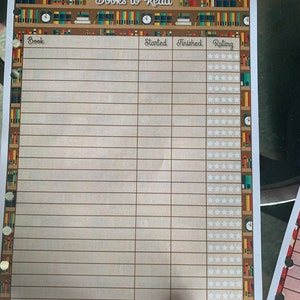 Books to Read
Book Started Finished Rating